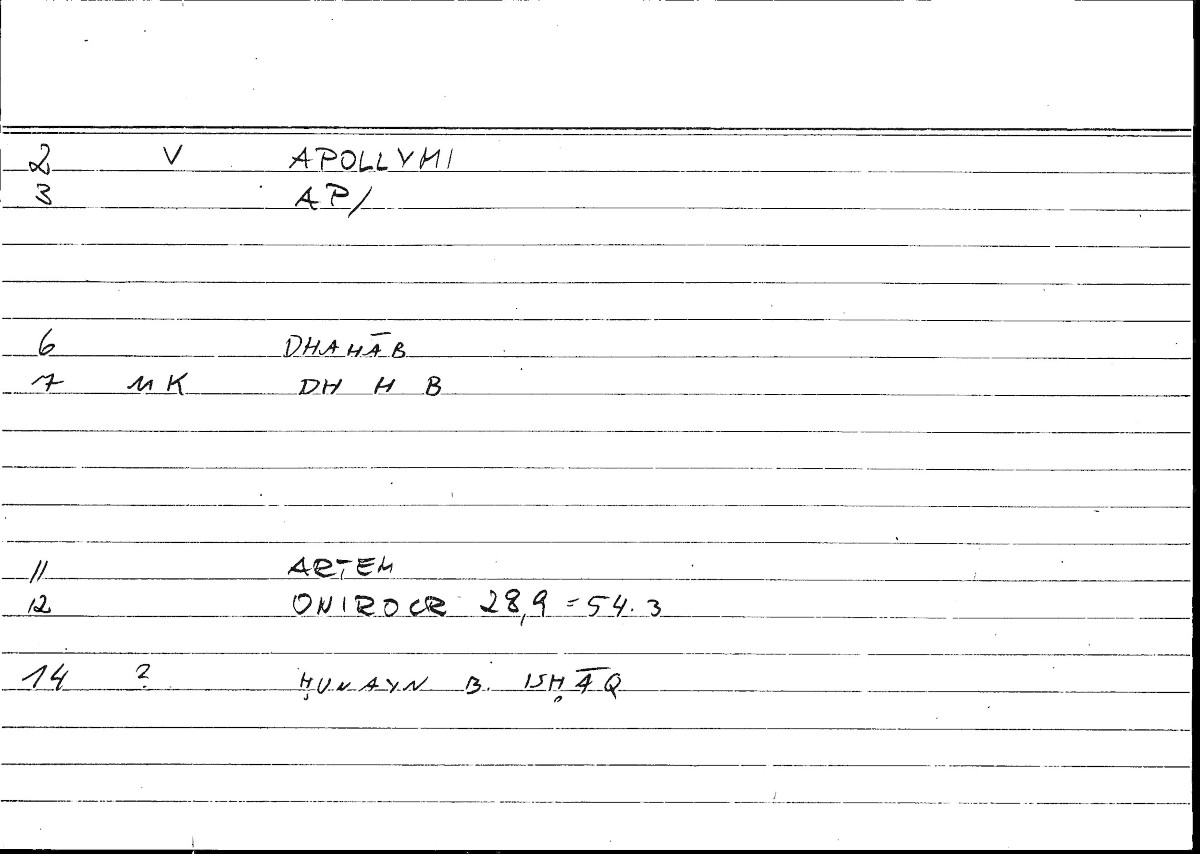 2 V APOLLYMI
3 AP/
6 DHAHĀB
7 MK DH H B
11 ARTEM
12 ONIROCR 28,9 = 54.3
14 ? ḤUNAYN B. ISḤĀQ